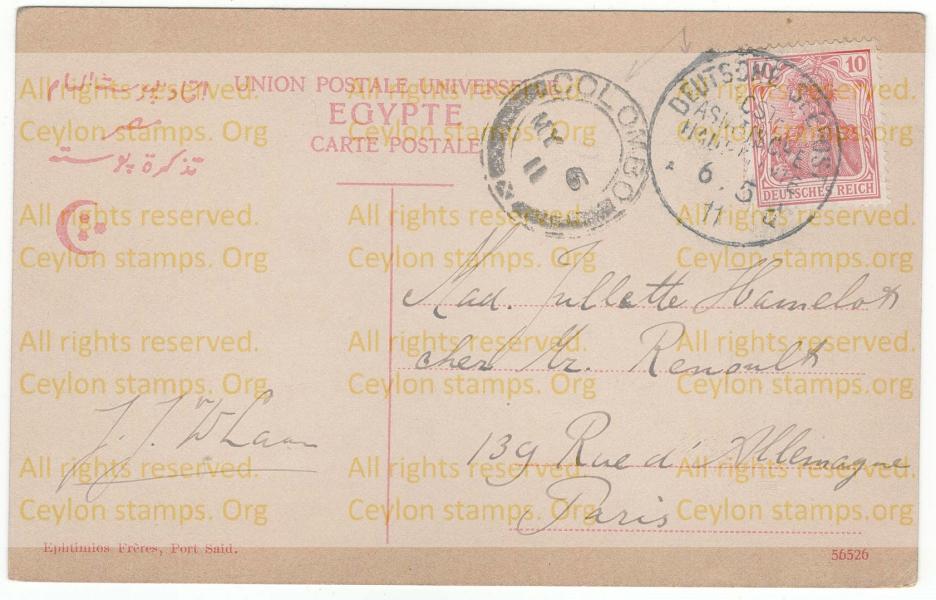 UNION POSTALE UNIVERSELLE
EGYPTE
CARTE POSTALE
مصر
تذكرة پوستة
COLOMBO
MY 6
11
DEUTSCHE SEEPOST
OSTASIATISCHE
HAUPTLINIE
6. 5
11
10
DEUTSCHES REICH
Mad. Jullette Hamelot
chez Mr. Renoult
139 Rue d'Allemagne
Paris
Ephtimios Frères, Port Said.
56526
All rights reserved.
Ceylon stamps. Org
All rights reserved.
Ceylon stamps. Org
All rights reserved.
Ceylon stamps. Org
All rights reserved.
Ceylon stamps. Org
All rights reserved.
Ceylon stamps. Org
All rights reserved.
Ceylon stamps. Org
All rights reserved.
Ceylon stamps. Org
All rights reserved.
Ceylon stamps. Org
All rights reserved.
Ceylon stamps. Org
All rights reserved.
Ceylon stamps. Org
All rights reserved.
Ceylon stamps. Org
All rights reserved.
Ceylon stamps. Org